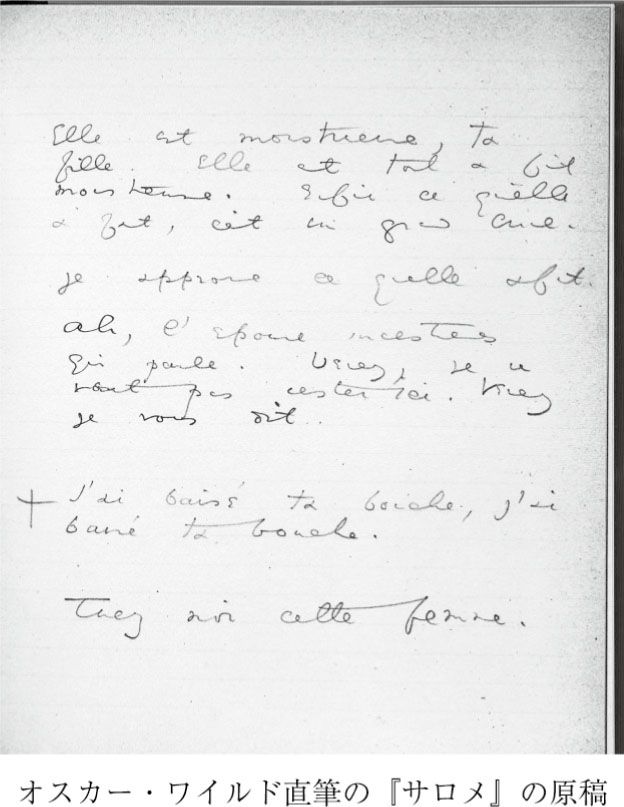 Elle est monstrueuse, ta
fille. Elle est tout a fait
monstrueuse. Enfin ce qu'elle
a fait, c'est un grand crime.
je approuve ce qu'elle a fait.
ah, l'epouse incestueuse
qui parle. Venez, je ne
veut pas rester ici. Venez
je vous dit.
+ J'ai baisé ta bouche, j'ai
baisé ta bouche.
Tuez moi cette femme.
オスカー・ワイルド直筆の『サロメ』の原稿